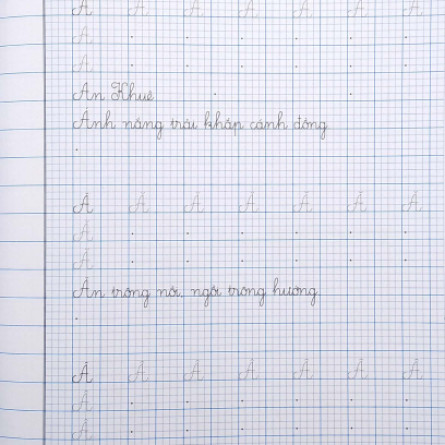 A A A A A A A
A
A
An Khuê
Ánh nắng trải khắp cánh đồng
Ă Ă Ă Ă Ă Ă Ă
Ă
Ă
Ăn trông nồi, ngồi trông hướng
Â Â Â Â Â Â Â
Â
Â